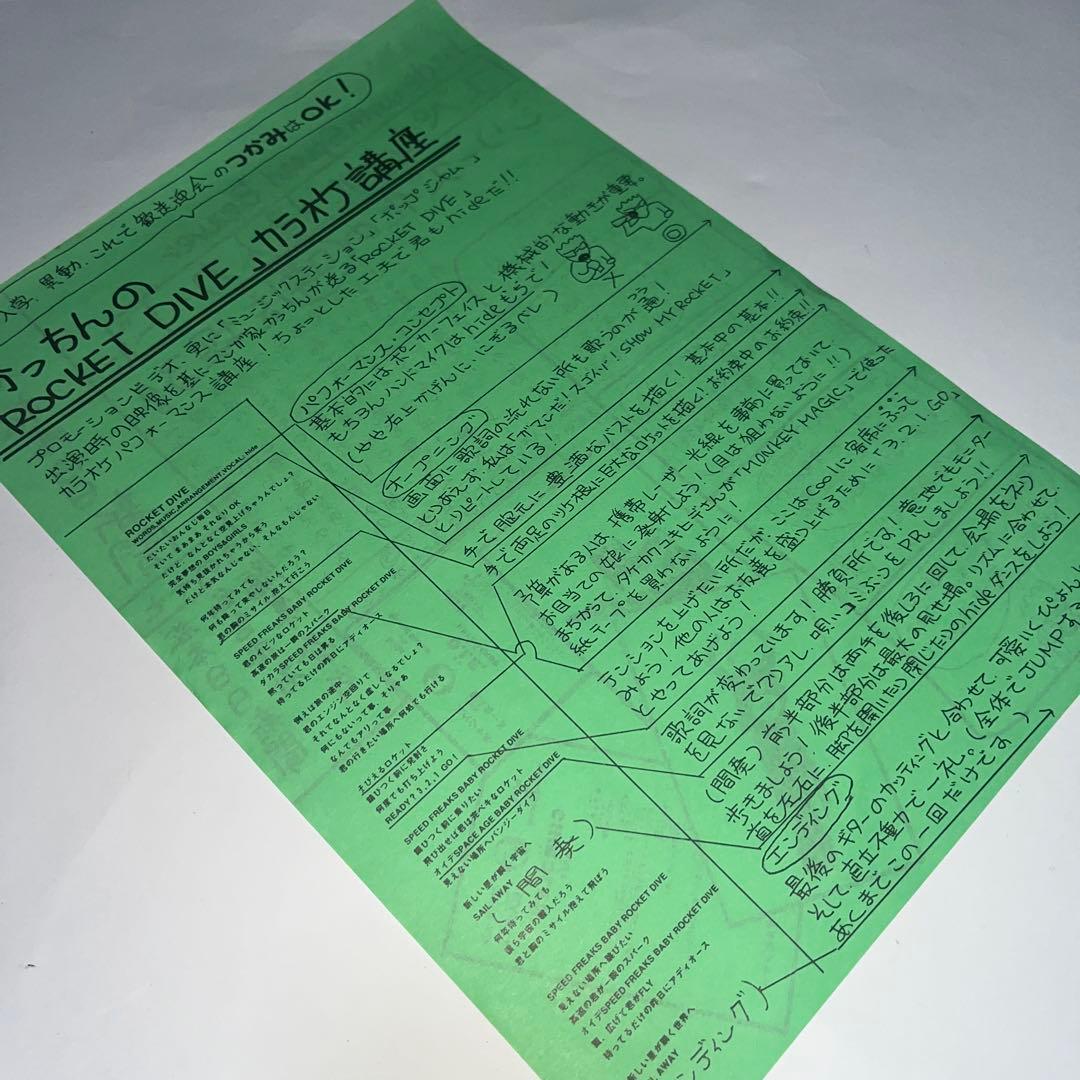 入学、異動、これで歓送迎会のつかみはOk!
っちんの
ROCKET DIVE」カラオケ講座
プロモーションビデオ、更に「ミュージックステーション」「ポップジャム」
出演時の映像を基にマンガ家かっちんが送る「ROCKET DIVE」
カラオケパフォーマンス講座!ちょっとした工夫で君もhideだ!!
パフォーマンス・コンセプト
基本的にはポーカーフェイスと機械的な動きが重要。
もちろんハンドマイクはhideもちで!
(やや右上かげんに、にぎるべし)
オープニング
画面に歌詞の流れない所も歌うのが通!
とりあえず私は「ガマンだ!スゴイゾ!SHOW MY ROCKET」
とリピートしている!
手で胸元に豊満なバストを描く!基本中の基本!!
手で両足のつけ根に巨大なロケットを描く!お約束中のお約束!!
予算がある人は、携帯レーザー光線を事前に買っておいて、
お目当ての娘に発射しよう!(目は狙わないように!!)
まちがって、タケカワユキヒデさんが「MONKEY MAGIC」で使った
紙テープを買わないように!
テンションを上げたい所だが、ここはCoolに客席にふって
みよう!他の人はお友達を盛り上げるために「3.2.1.GO」
とやってあげよう!
歌詞が変わってます!勝負所です!意地でもモーター
を見ないでクリアし、唄いこみぶりをPRしましょう!!
(間奏)前半部分は両手を後ろに回して、会場をネリ
歩きましょう!後半部分は最大の見せ場。リズムに合わせて、
首を左右に、脚を開いたり閉じたりのhideダンスをしよう!
エンディング
最後のギターのカッティングと合わせて、可愛いくぴょん
そして直立不動で一礼。(全体でJUMPす
あくまでこの一回だけでは)
ROCKET DIVE
WORDS,MUSIC,ARRANGEMENT,VOCAL: hide
だいたいおんなじ毎日
そいで まあまあ それなり OK
だけど なんとなく空見上げちゃうんでしょ?
完全夢想の BOYS&GIRLS
気持ち見透かれちゃうから笑う
だけど楽天なんじゃない、そんなもんじゃない
何年待ってみても
何も降って来やしないんだろう?
君の胸のミサイル 抱えて行こう
SPEED FREAKS BABY ROCKET DIVE
君のイビツなロケット
高速の旅は一瞬のスパーク
タカラSPEED FREAKS BABY ROCKET DIVE
黙っていても日は昇る
待ってるだけの昨日にアディオース
例えば旅の途中
君のエンジン空回りで
それでなんとなく虚しくなるでしょ?
何にもないって事、そりゃあ
なんでもアリって事
君の行きたい場所へ何処でも行ける
そびえるロケット
錆びつく前に発射さ
何度でも打ち上げよう
READY? 3, 2, 1 GO!
SPEED FREAKS BABY ROCKET DIVE
錆びつく前に乗りたい
飛び出せば君は宛ベキなロケット
オイデSPACE AGE BABY ROCKET DIVE
見えない場所へバンジーダイブ
新しい星が瞬く宇宙へ
SAIL AWAY
(間奏)
何年待ってみても
僕ら宇宙の暇人だろう
君と胸のミサイル抱えて飛ぼう
SPEED FREAKS BABY ROCKET DIVE
見えない場所へ跳びたい
高速の君が一瞬のスパーク
オイデSPEED FREAKS BABY ROCKET DIVE
翼、広げて君がFLY
待ってるだけの昨日にアディオース
新しい星が瞬く世界へ
SAIL AWAY
ンディング)